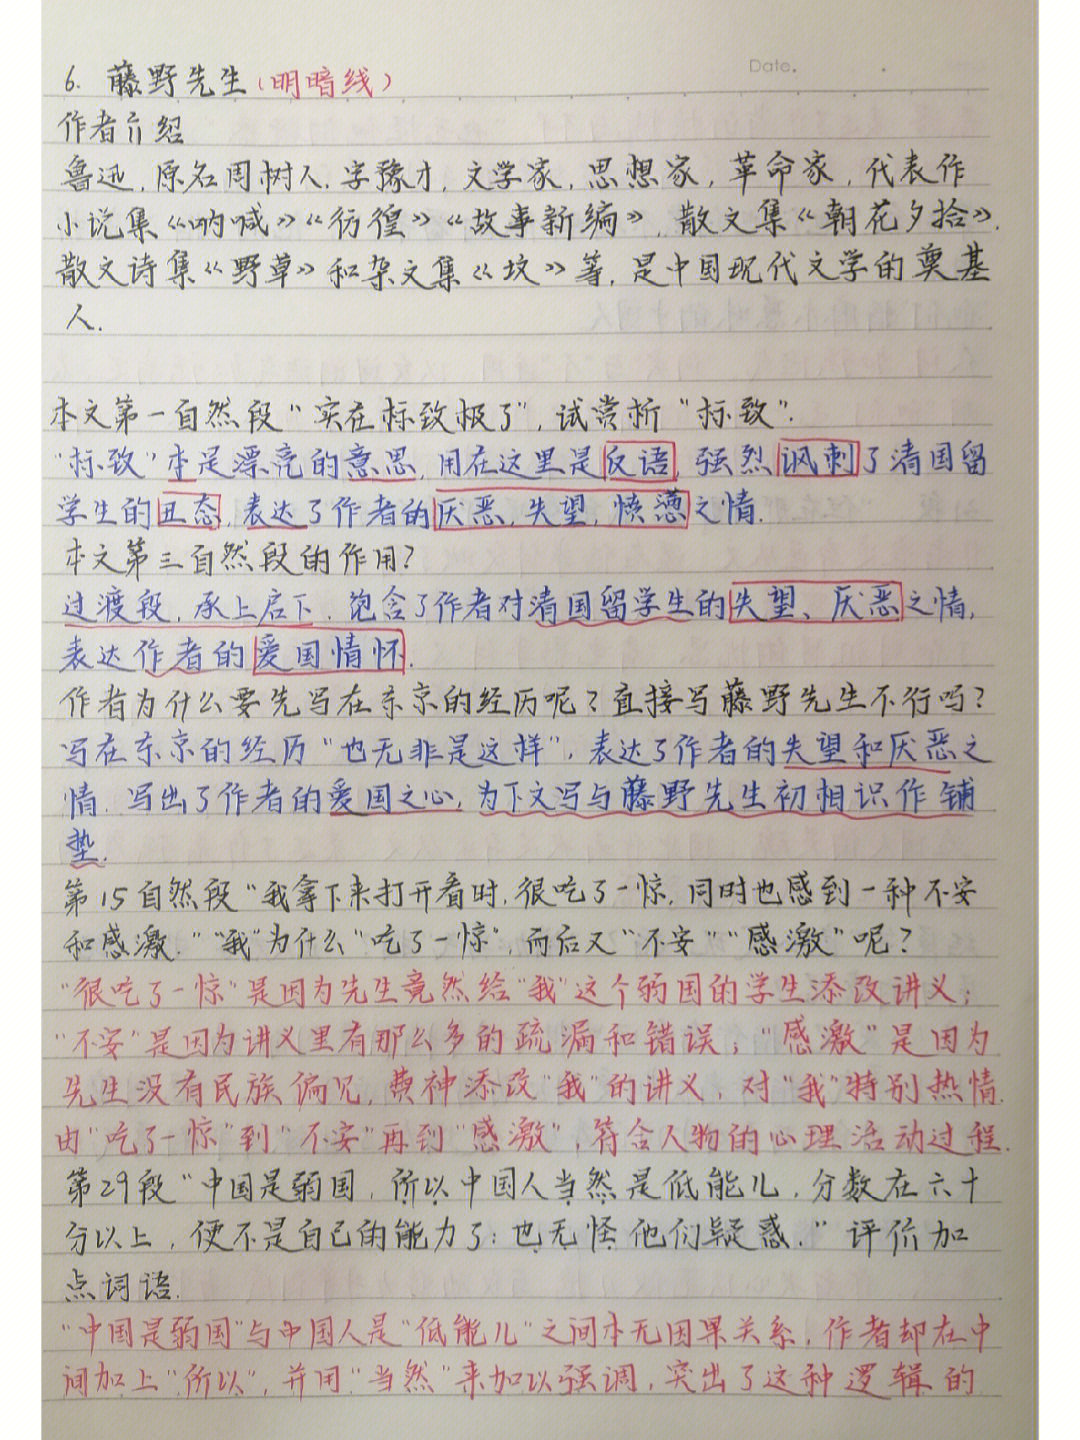 Date.
6. 藤野先生(明暗线)
作者介绍
鲁迅,原名周树人.字豫才,文学家,思想家,革命家,代表作
小说集《呐喊》《彷徨》《故事新编》,散文集《朝花夕拾》.
散文诗集《野草》和杂文集《坟》等,是中国现代文学的奠基
人.
本文第一自然段"实在标致极了",试赏析"标致".
"标致"本是漂亮的意思,用在这里是反语,强烈讽刺了清国留
学生的丑态,表达了作者的厌恶,失望,愤懑之情.
本文第三自然段的作用?
过渡段,承上启下.饱含了作者对清国留学生的失望、厌恶之情,
表达作者的爱国情怀.
作者为什么要先写在东京的经历呢?直接写藤野先生不行吗?
写在东京的经历"也无非是这样",表达了作者的失望和厌恶之
情.写出了作者的爱国之心,为下文写与藤野先生初相识作铺
垫.
第15自然段"我拿下来打开看时,很吃了一惊,同时也感到一种不安
和感激.""我"为什么"吃了一惊",而后又"不安""感激"呢?
"很吃了一惊"是因为先生竟然给"我"这个弱国的学生添改讲义;
"不安"是因为讲义里有那么多的疏漏和错误;"感激"是因为
先生没有民族偏见,费神添改"我"的讲义,对"我"特别热情.
由"吃了一惊"到"不安"再到"感激",符合人物的心理活动过程.
第29段"中国是弱国,所以中国人当然是低能儿,分数在六十
分以上,便不是自己的能力了:也无怪他们疑惑."评价加
点词语.
"中国是弱国"与中国人是"低能儿"之间本无因果关系,作者却在中
间加上"所以",并用"当然"来加以强调,突出了这种逻辑的